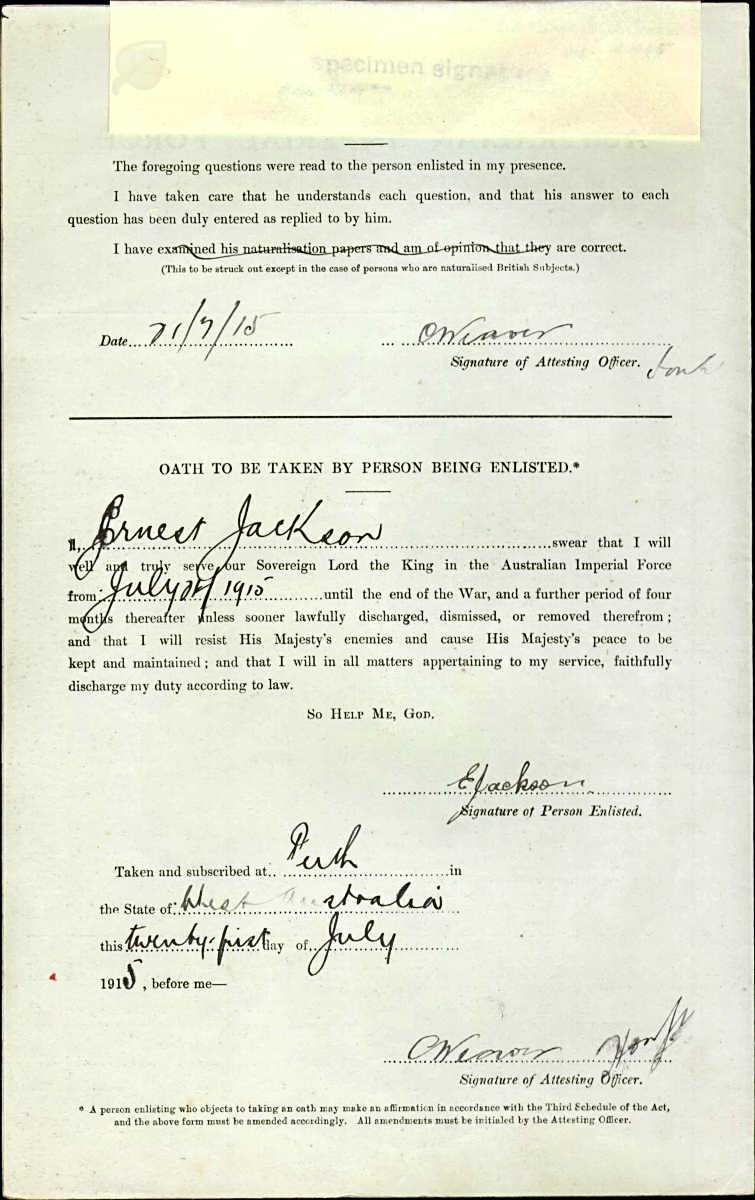 specimen signature
The foregoing questions were read to the person enlisted in my presence.
I have taken care that he understands each question, and that his answer to each
question has been duly entered as replied to by him.
I have examined his naturalisation papers and am of opinion that they are correct.
(This to be struck out except in the case of persons who are naturalised British Subjects.)
Date 21/7/15 CWeaver
Signature of Attesting Officer.
OATH TO BE TAKEN BY PERSON BEING ENLISTED.*
I, Ernest Jackson swear that I will
well and truly serve our Sovereign Lord the King in the Australian Imperial Force
from July 21st 1915 until the end of the War, and a further period of four
months thereafter unless sooner lawfully discharged, dismissed, or removed therefrom;
and that I will resist His Majesty's enemies and cause His Majesty's peace to be
kept and maintained; and that I will in all matters appertaining to my service, faithfully
discharge my duty according to law.
So Help Me, God.
EJackson
Signature of Person Enlisted.
Taken and subscribed at Perth in
the State of West Australia
this twenty-first day of July
1915, before me—
CWeaver
Signature of Attesting Officer.
* A person enlisting who objects to taking an oath may make an affirmation in accordance with the Third Schedule of the Act,
and the above form must be amended accordingly. All amendments must be initialed by the Attesting Officer.